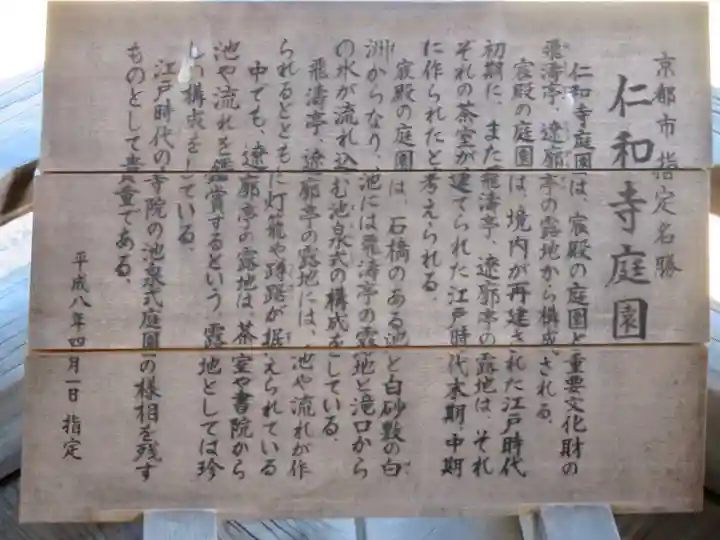 京都市指定名勝
仁和寺庭園
仁和寺庭園は、宸殿の庭園と重要文化財の
飛濤亭、遼廓亭の露地から構成される。
宸殿の庭園は、境内が再建された江戸時代
初期に、また飛濤亭、遼廓亭の露地は、それ
ぞれの茶室が建てられた江戸時代末期、中期
に作られたと考えられる。
宸殿の庭園は、石橋のある池と白砂敷の白
洲からなり、池には飛濤亭の露地と滝口から
の水が流れ込む池泉式の構成をしている。
飛濤亭、遼廓亭の露地には、池や流れが作
られるとともに灯籠や蹲踞が据えられている
中でも、遼廓亭の露地は、茶室や書院から
池や流れを鑑賞するという、露地としては珍
しい構成をしている。
江戸時代の寺院の池泉式庭園の様相を残す
ものとして貴重である。
平成八年四月一日 指定